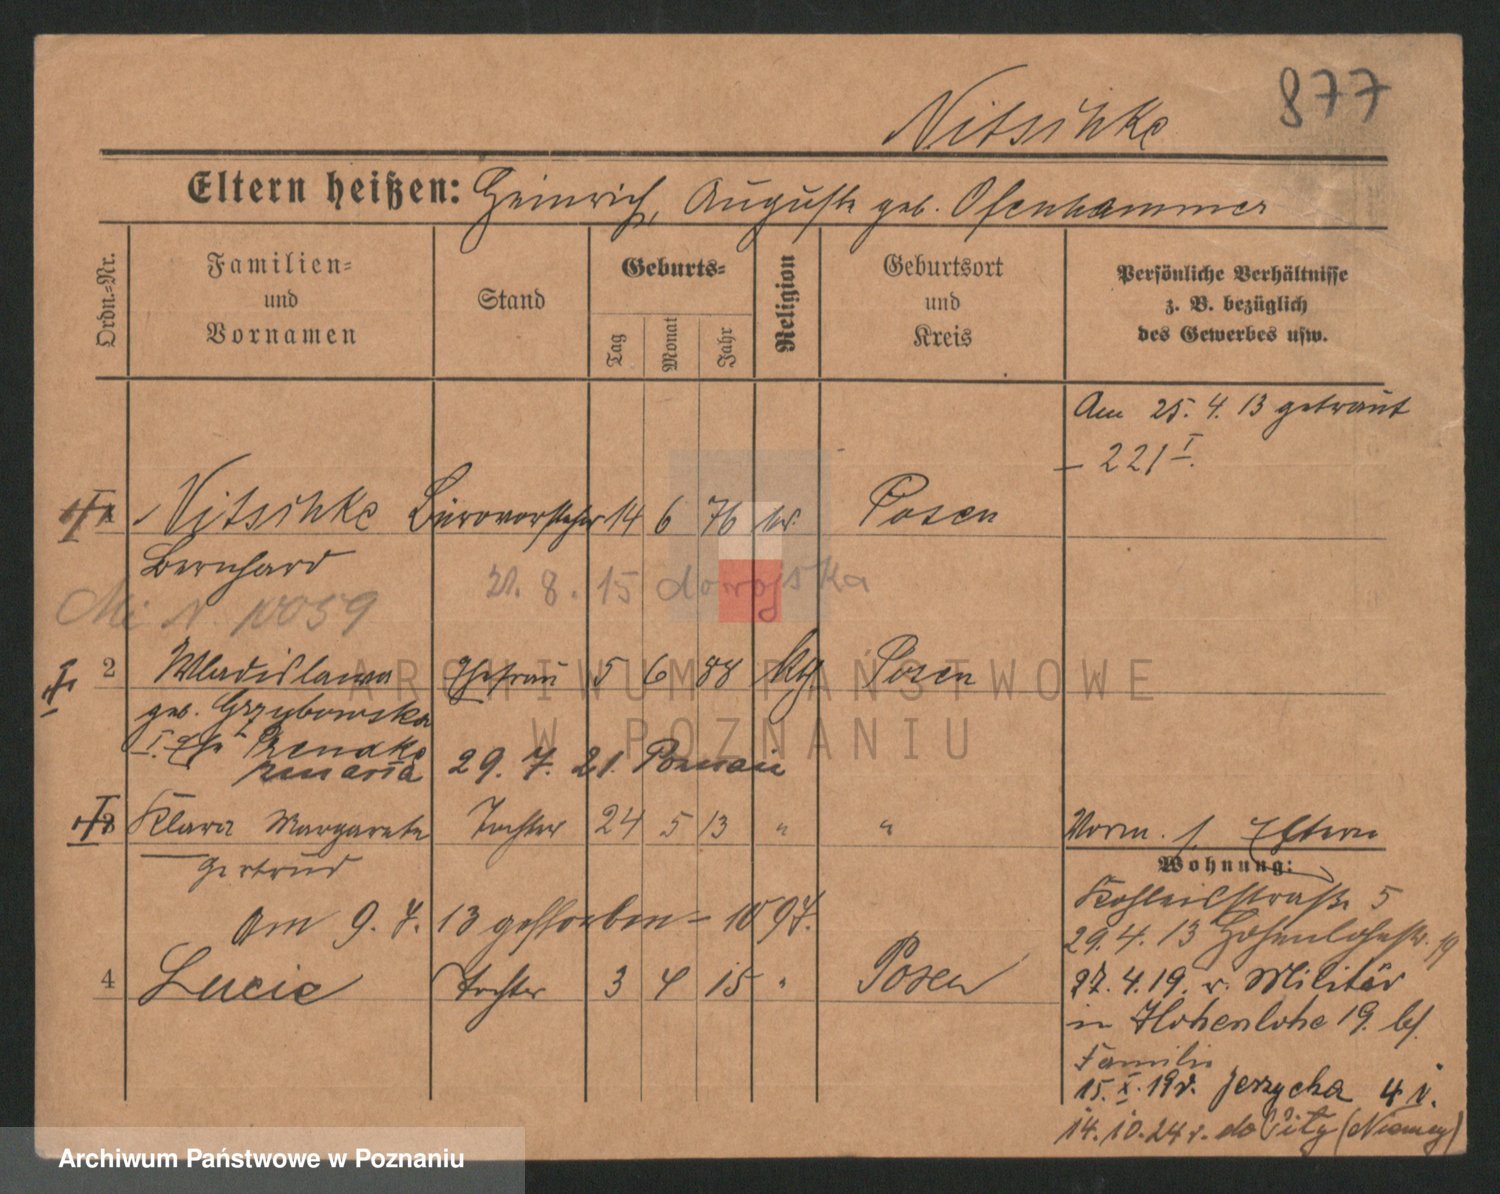 877
Nitschke
Eltern heißen: Heinrich, Auguste geb. Ofenhammer
Ordn.-Nr.
Familien-
und
Vornamen
Stand
Geburts-
Tag
Monat
Jahr
Religion
Geburtsort
und
Kreis
Persönliche Verhältnisse
z. B. bezüglich
des Gewerbes usw.
Am 25. 4. 13 getraut
– 221 I.
1 Nitschke Bürovorsteher 14 6 76 ev. Posen
Bernhard
21. 8. 15
N. 10059
2 Wladislawa Ehefrau 5 6 88 kth. Posen
geb. Grzybowska
29. 7. 21. Poznań
3 Klara Margarete Tochter 24 5 13 " " Vorm. s. Eltern
Gertrud
Am 9. 7. 13 gestorben – 1097.
4 Lucie Tochter 3 4 15 " Posen
Wohnung:
5
29. 4. 13 Hohenlohestr. 19
27. 4. 19. v. Militär
in Hohenlohe 19. bs.
Familie
15. X. 19 r. Jerzycka 4 I.
14. 10. 24 r. do (Niemcy)
ARCHIWUM PAŃSTWOWE
W POZNANIU
Archiwum Państwowe w Poznaniu